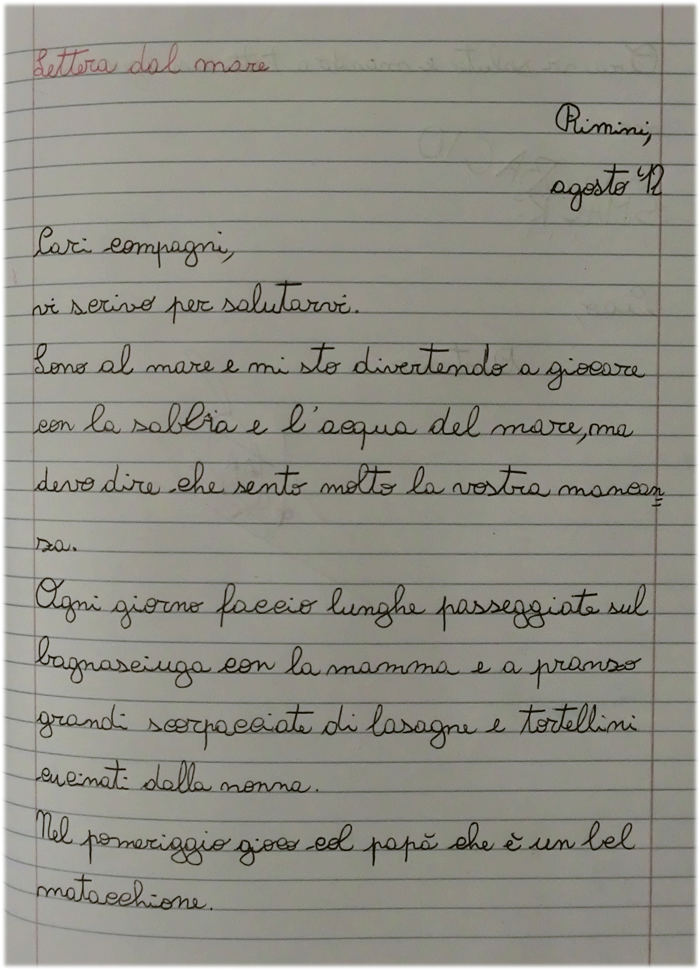 Lettera dal mare
Rimini,
agosto '12
Cari compagni,
vi scrivo per salutarvi.
Sono al mare e mi sto divertendo a giocare
con la sabbia e l'acqua del mare, ma
devo dire che sento molto la vostra mancan=
za.
Ogni giorno faccio lunghe passeggiate sul
bagnasciuga con la mamma e a pranzo
grandi scorpacciate di lasagne e tortellini
cucinati dalla nonna.
Nel pomeriggio gioco col papà che è un bel
matacchione.